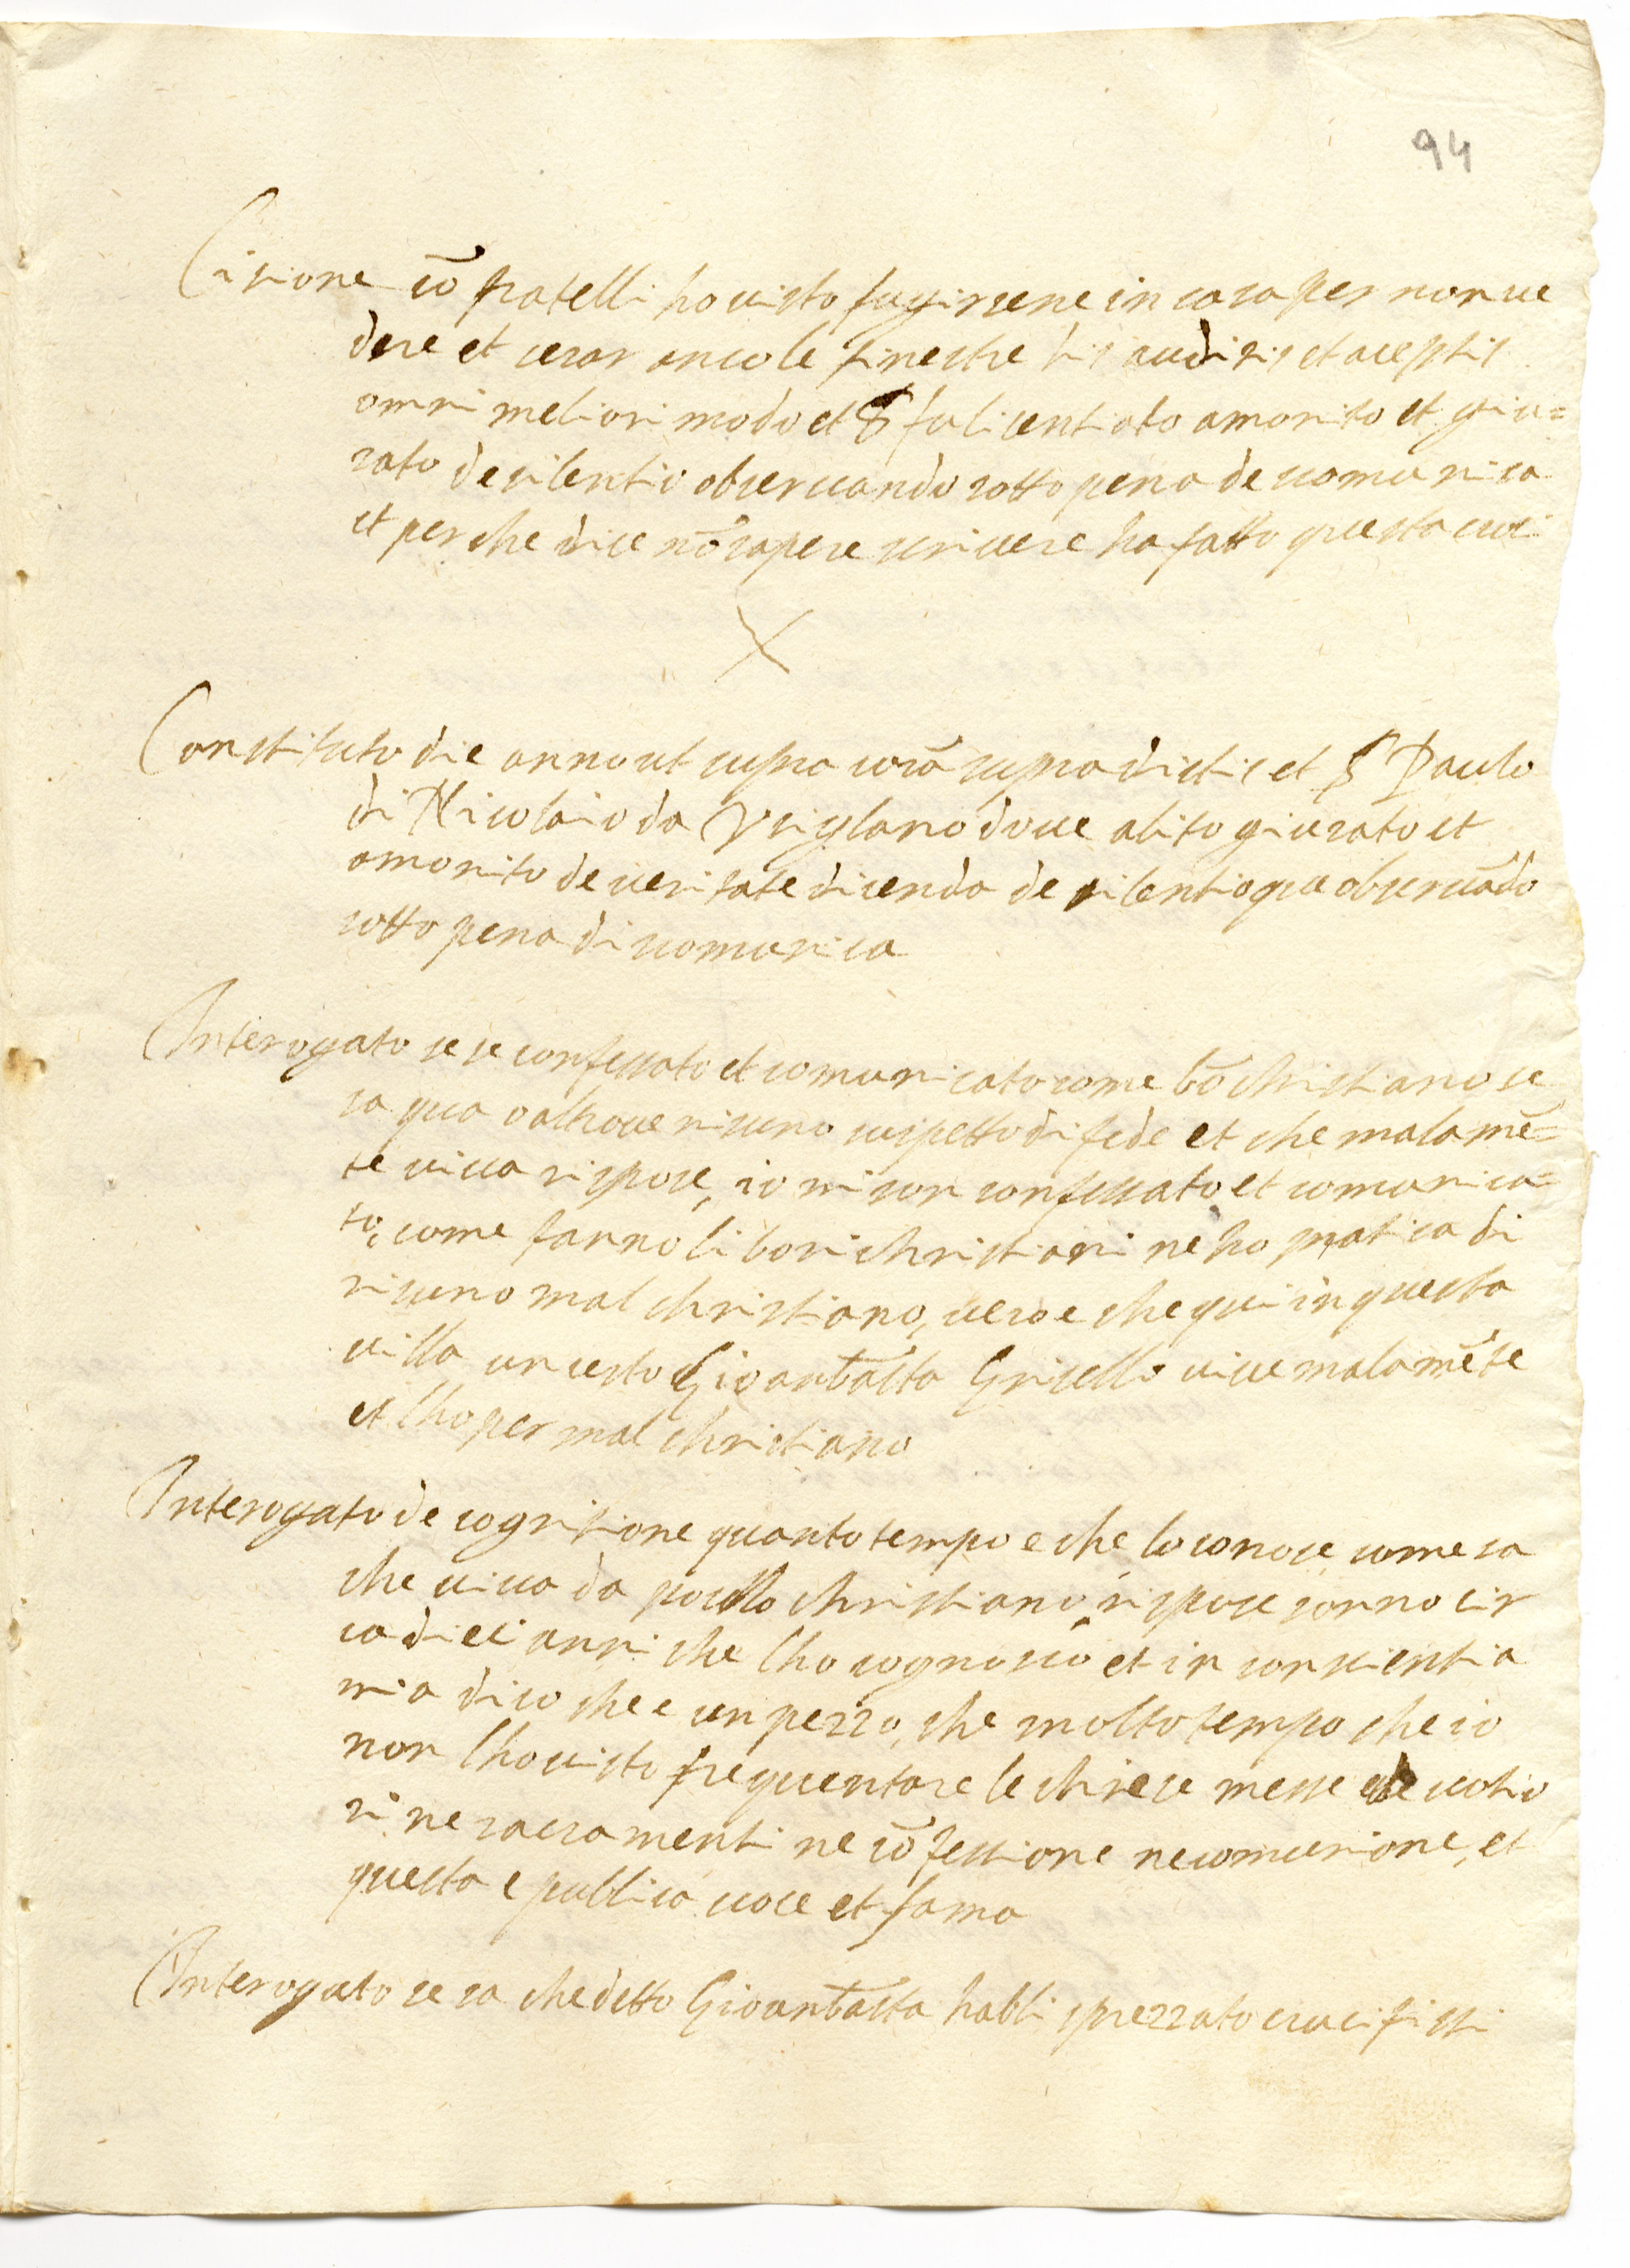 94
Cisione cō fratelli ho visto fugirsene in casa per non ve
dere et serar anco le finestre his auditis et aceptis
omni meliori modo et fu licentiato amonito et giu=
rato de silentio observando sotto pena de scomunica
et perche dice nō sapere scrivere ha fatto questa croce
X
Constituto die anno ut supra corā supradictis et S Paulo
di Nicolaio da Vriglano dove abito giurato et
amonito de veritate dicenda de silentioque observādo
sotto pena di scomunica
Interogato se se confessato et comunicato come bō christiano se
sa qua o altrove nisuno suspetto di fede et che malamē=
te viva rispose, io mi son confessato et comunica=
to, come fanno li boni christiani ne ho pratica di
nisuno mal christiano, vero e che qui in questa
villa un certo Gioanbatta Griselli vive malamēte
et lho per mal christiano
Interogato de cognitione quanto tempo e che lo conosce, come sa
che viva da pocho christiano, rispose sonno cir
ca dieci anni che lho cognosciuto et in conscientia
mia dico che e un pezzo, che molto tempo che io
non lho visto frequentare le chiese messe
ri ne sacramenti ne cōfessione ne comunione, et
questa e publica voce et fama
Interogato se sa che detto Gioanbatta habbi sprezzato crucifissi